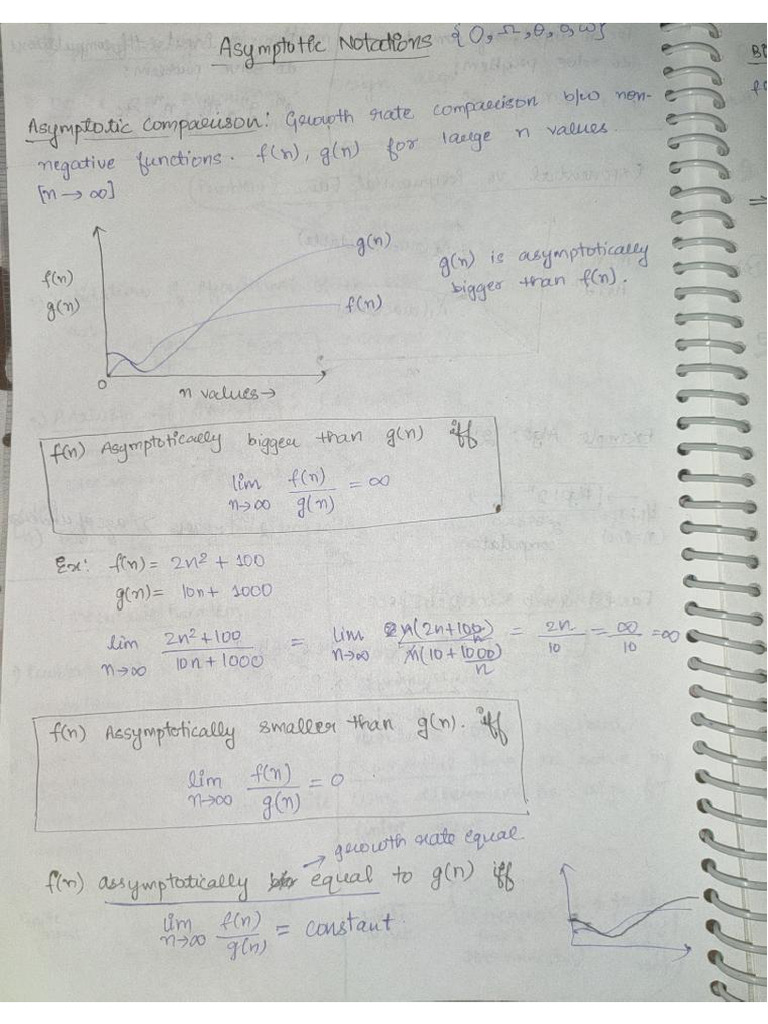 Asymptotic Notations {O, Ω, θ, o, ω}
Asymptotic Comparison: Growth rate comparison b/w non-
negative functions. f(n), g(n) for large n values.
[n → ∞]
g(n)
f(n)
g(n)
f(n)
g(n) is asymptotically
bigger than f(n).
0
n values →
f(n) Asymptotically bigger than g(n) iff
lim n→∞ f(n)/g(n) = ∞
Ex: f(n) = 2n² + 100
g(n) = 10n + 1000
lim n→∞ (2n²+100)/(10n+1000) = lim n→∞ n(2n+100/n)/n(10+1000/n) = 2n/10 = ∞/10 = ∞
f(n) Assymptotically smaller than g(n). iff
lim n→∞ f(n)/g(n) = 0
→ growth rate equal
f(n) assymptotically equal to g(n) iff
lim n→∞ f(n)/g(n) = constant.